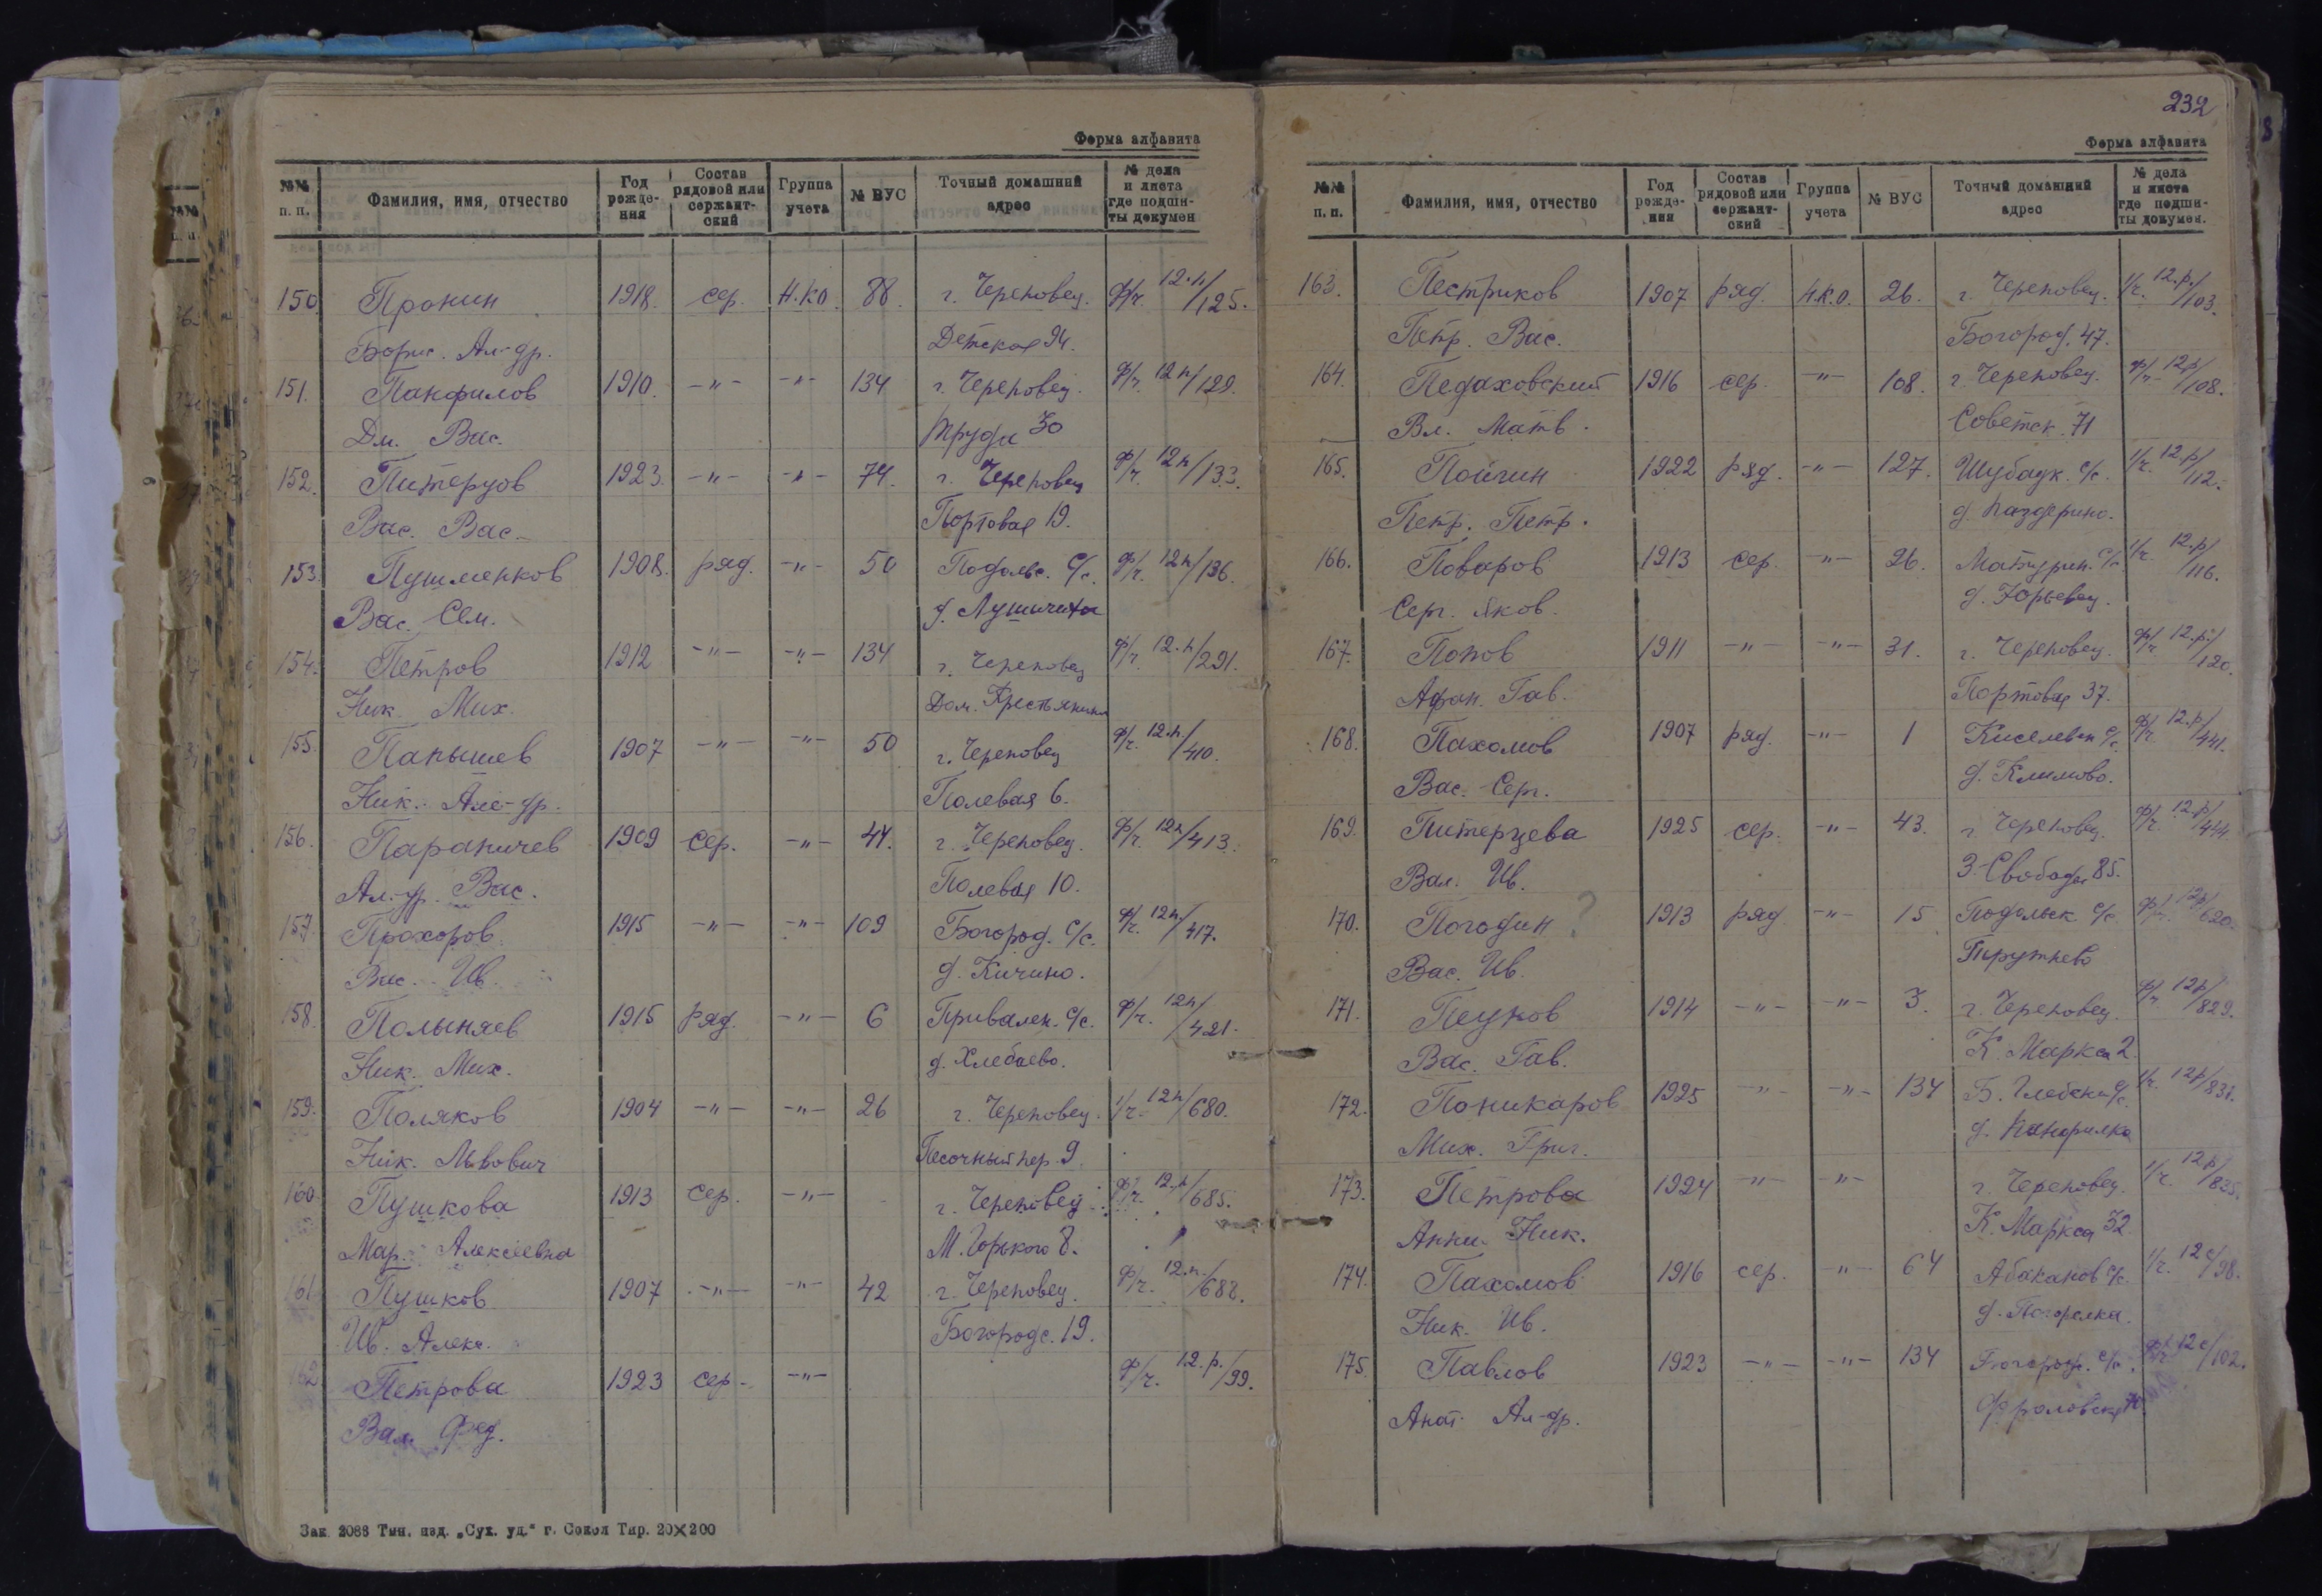 Форма алфавита
№№ п. п. Фамилия, имя, отчество Год рожде-ния Состав рядовой или сержант-ский Группа учета № ВУС Точный домашний адрес № дела и листа где подши-ты докумен
150 Пронин 1918. сер. Н.К.О. 88. г. Череповец. ф/г. 12.п/125.
Борис. Ал-др. Детская 94.
151. Панфилов 1910. -"- -"- 134 г. Череповец. ф/г. 12п/129.
Дм. Вас. Труда 30
152. Питерцов 1923 -"- -"- 74. г. Череповец ф/г. 12п/133.
Вас. Вас. Портовая 19.
153. Пушменков 1908. ряд. -"- 50 Подольс. С/с. ф/г. 12п/136.
Вас. Сем. д.
154. Петров 1912 -"- -"- 134 г. Череповец ф/г. 12.п/291.
Ник. Мих. Дом. Крестьянина
155. Папышев 1907 -"- -"- 50 г. Череповец ф/г. 12.п/410.
Ник. Але-др. Полевая 6.
156. Параничев 1909 сер. -"- 44. г. Череповец. ф/г. 12п/413.
Ал-др. Вас. Полевая 10.
157. Прохоров 1915 -"- -"- 109 Богород. С/с. ф/г. 12п/417.
Вас. Ив. д. Кичино.
158. Полыняев 1915 ряд. -"- 6 Привален. С/с. ф/г. 12п/421.
Ник. Мих. д. Хлебаево.
159. Поляков 1904 -"- -"- 26 г. Череповец. 1/г. 12п/680.
Ник. Львович Песочный пер. 9.
160 Пушкова 1913 сер. -"- г. Череповец ф/г. 12.п/685.
Мар. Алексеевна М. Горького 8.
161 Пушков 1907 -"- -"- 42 г. Череповец. ф/г. 12.п./688.
Ив. Алек. Богородс. 19.
162 Петрова 1923 сер- -"- ф/г. 12.р./99.
Вал. Фед.
Зак. 2088 Тип. изд. „Сух. уд.“ г. Сокол Тир. 20×200
232
Форма алфавита
№№ п. п. Фамилия, имя, отчество Год рожде-ния Состав рядовой или сержант-ский Группа учета № ВУС Точный домашний адрес № дела и листа где подши-ты докумен.
163. Пестриков 1907 ряд. Н.К.О. 26. г. Череповец. 1/г. 12.р./103.
Петр. Вас. Богород. 47.
164. Педаховский 1916 сер. -"- 108. г. Череповец. ф/г. 12р/108.
Вл. Матв. Советск. 71
165. Пойгин 1922 ряд. -"- 127. Шубацк. С/с. 1/г. 12р/112.
Петр. Петр. д. Паздерино.
166. Поваров 1913 сер. -"- 26. Матурин. С/с. 1/г. 12.р/116.
Серг. Яков. д. Юрьевец.
167. Попов 1911 -"- -"- 31. г. Череповец. ф/г. 12.р/120.
Афан. Гав. Портовая 37.
168. Пахомов 1907 ряд. -"- 1 Киселевск С/с. ф/г. 12.р/441.
Вас. Серг. д. Климово.
169. Питерцева 1925 сер. -"- 43. г. Череповец. ф/г. 12.р/444
Вал. Ив. З. Свободы 85.
170. Погодин ? 1913 ряд -"- 15 Подольск С/с. ф/г. 12р/620.
Вас. Ив.
171. Пецков 1914 -"- -"- 3. г. Череповец. ф/г 12р/829.
Вас. Гав. К. Маркса 2.
172. Поникаров 1925 -"- -"- 134 1/г. 12р/831.
Мих. Григ. д.
173. Петрова 1924 -"- -"- г. Череповец. 1/г. 12р/835.
Анна Ник. К. Маркса 32
174. Пахомов 1916 сер. -"- 64 Абаканов С/с. 1/г. 12с/98.
Ник. Ив. д. Погорелка.
175. Павлов 1923 -"- -"- 134 Богородс. С/с. ф/г 12с/102.
Анат. Ал-др.